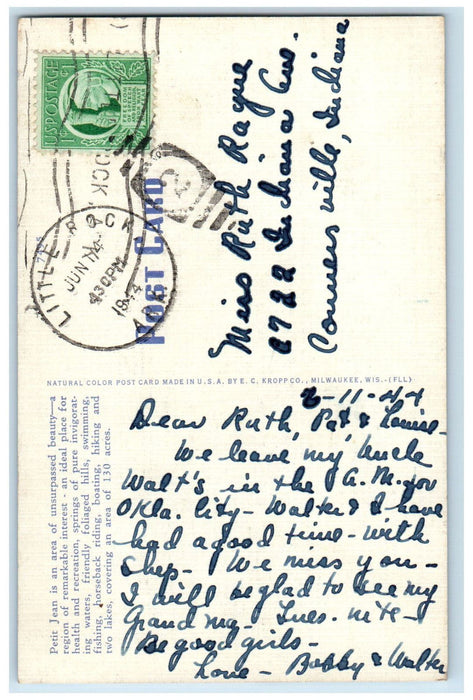 U.S. POSTAGE
1¢
LITTLE ROCK
JUN 12
4 30 PM
1944
ARK.
POST CARD
Miss Ruth Rayne
Indiana Ave.
Connersville, Indiana
NATURAL COLOR POST CARD MADE IN U.S.A. BY E. C. KROPP CO., MILWAUKEE, WIS.-(FLL)
Petit Jean is an area of unsurpassed beauty—a
region of remarkable interest - an ideal place for
health and recreation, springs of pure invigorat-
ing waters, friendly foliaged hills, swimming,
fishing, horseback riding, boating; hiking and
two lakes, covering an area of 130 acres.
6-11-44
Dear Ruth, Pat & Louise-
We leave my Uncle
Walt's in the A.M. for
Okla. City- Walter & I have
had a good time- with
Shep- We miss you-
I will be glad to see my
Grand ma- Tues. nite-
Be good girls-
Love- Bobby & Walter